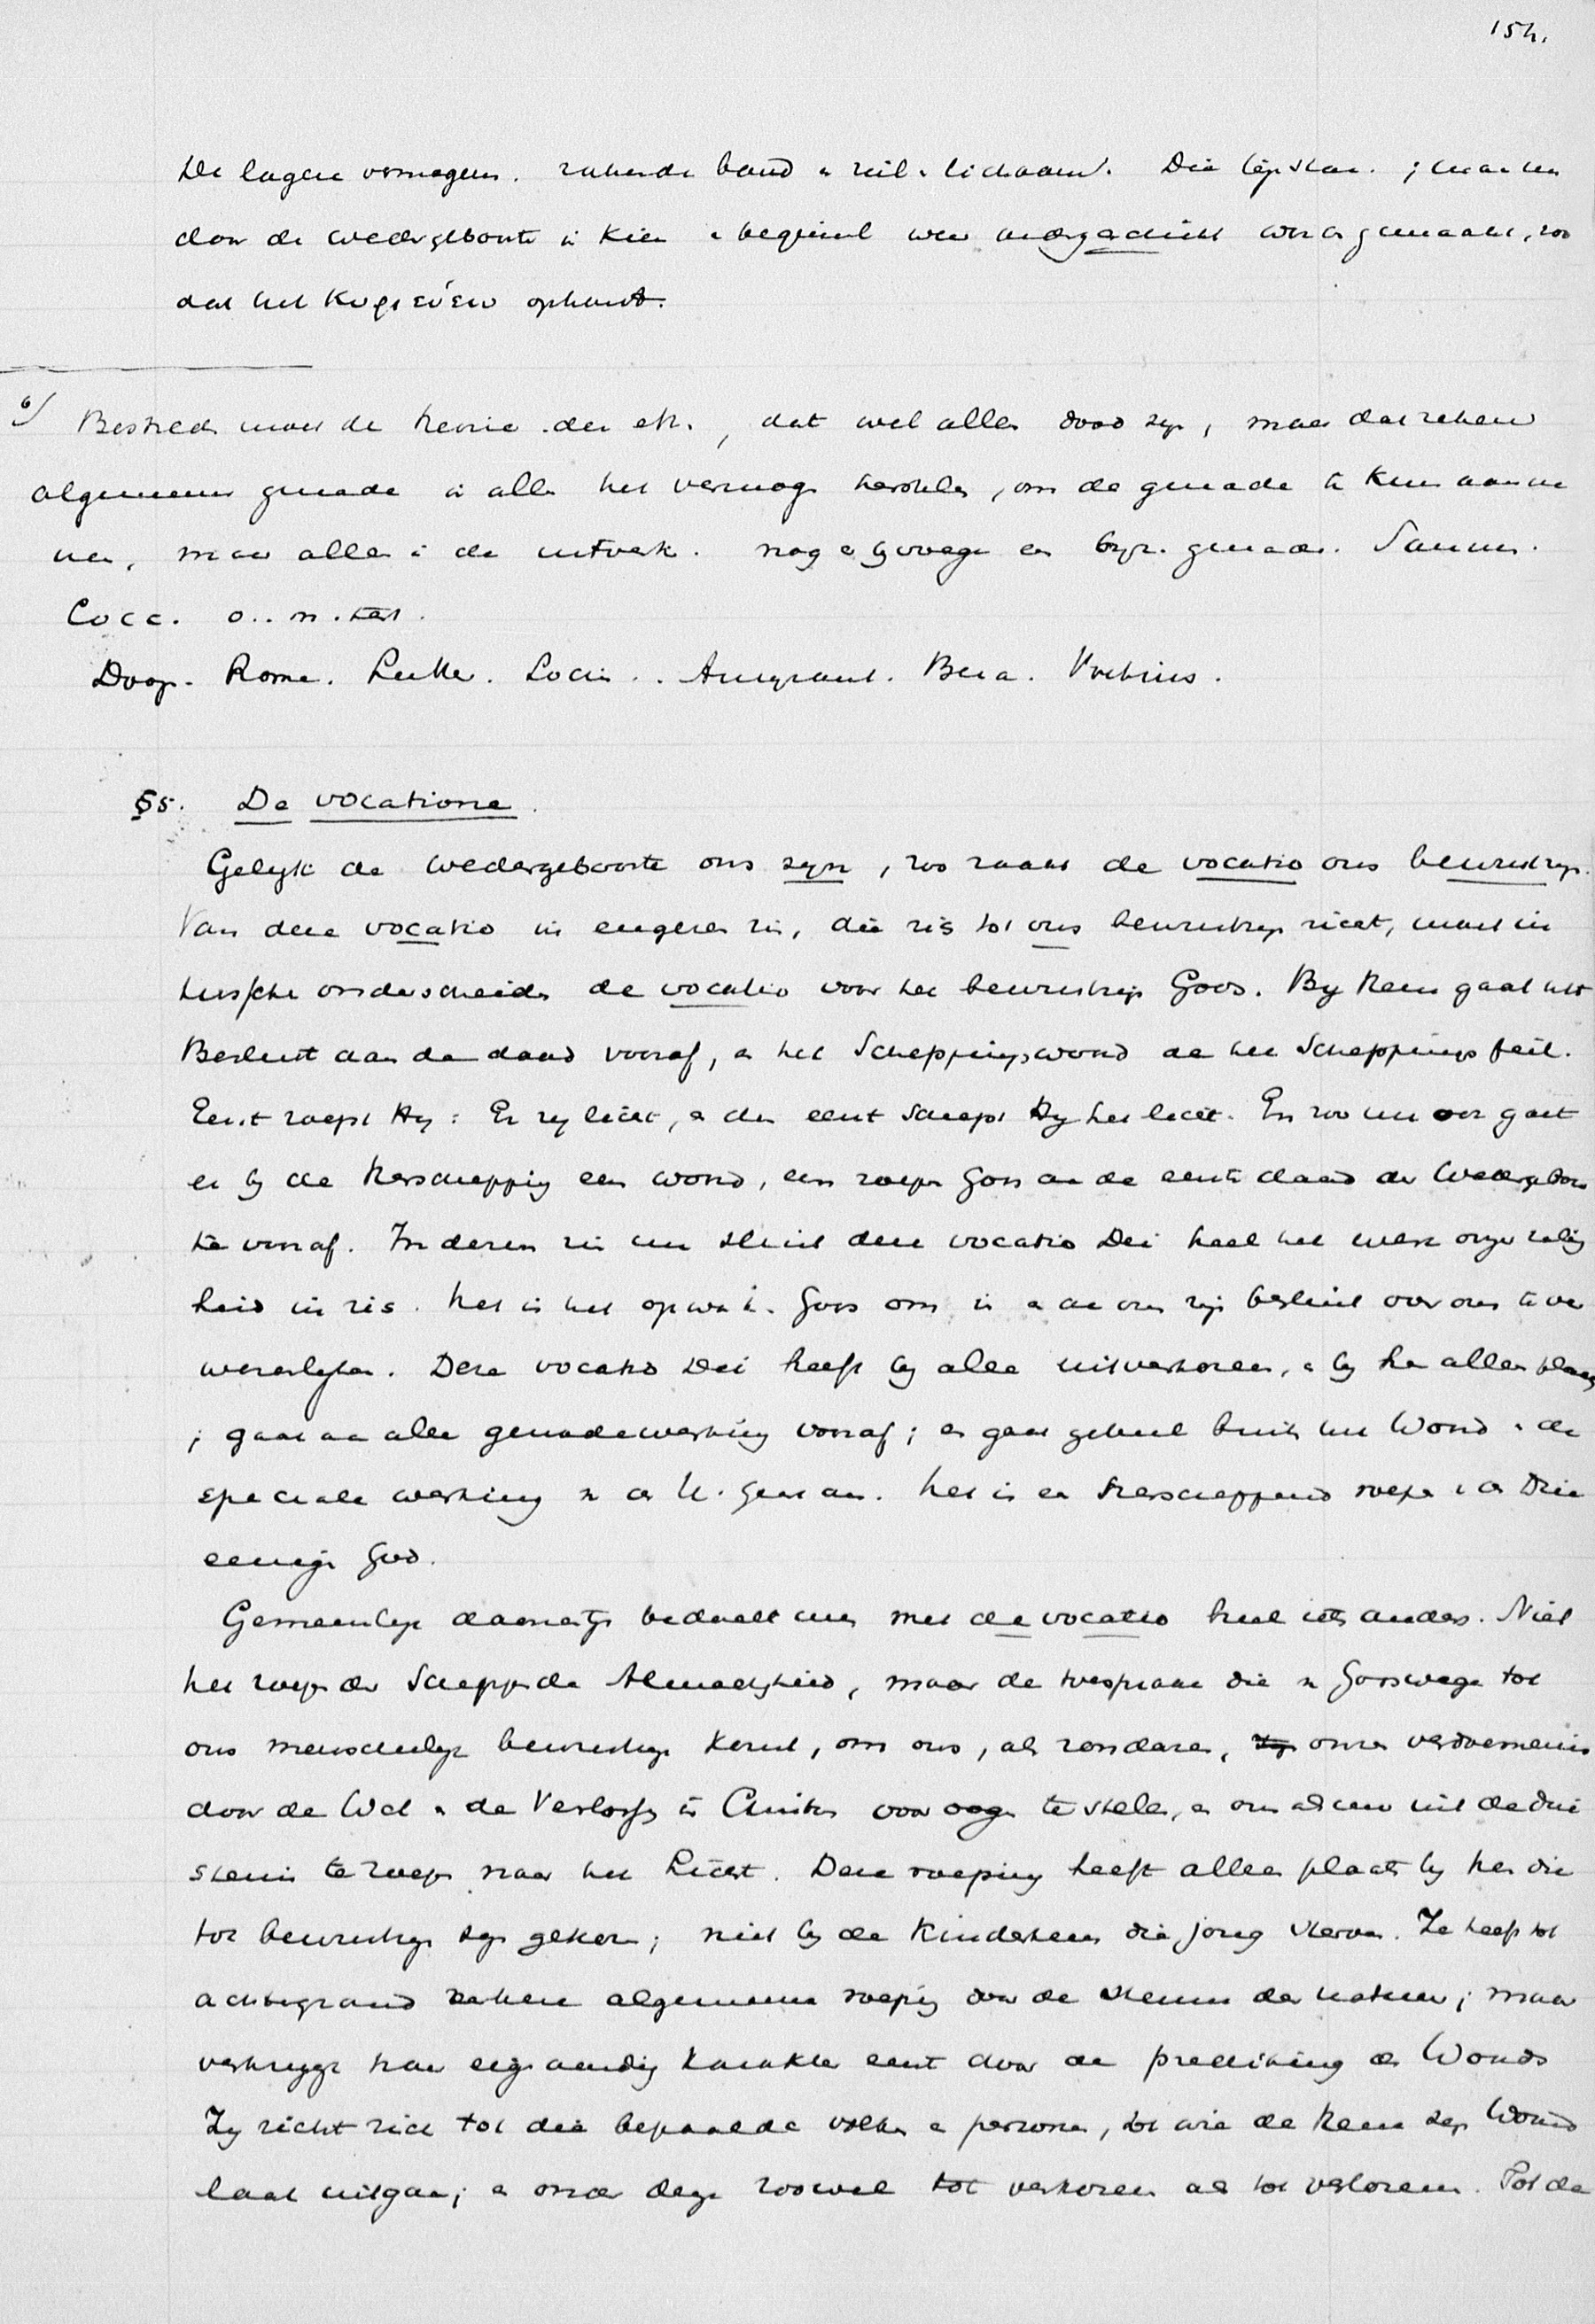 154.
De lagere vermogens. rakende band v ziel v lichaam. Die bijst..
door de wedergeboorte in kiem v beginsel weer ondergeschikt wordt gemaakt, zoo
dat het κυριεύειν ophoudt.
6/ Bestreden moet de kennis der eth., dat wel allen dood zijn, maar dat zekere
algemeene genade in allen het vermogen herstelde, om de genade te kunnen aanne
men, maar alleen in de uitverk. nog er bijvoegen een byz. genade. Saumur.
Cocc.
Doop. Rome. Luther. Locis. Amyraut. Beza. Voetius.
§5. De vocatione.
Gelijk de wedergeboorte ons zijn, zoo raakt de vocatio ons bewustzijn.
Van deze vocatio in engeren zin, die zich tot ons bewustzijn richt, moet in
tusschen onderscheiden de vocatio voor het bewustzijn Gods. By Hem gaat het
Besluit aan de daad vooraf, en het Scheppingswoord aan het Scheppingsfeit.
Eerst roept Hy: Er zy licht, en dan eerst schept Hy het licht. En zoo nu ook gaat
er by de Herschepping een woord, een roepen Gods aan de eerste daad der Wedergeboor
te vooraf. In dezen zin nu sluit deze vocatio Dei heel het werk onzer zalig
heid in zich. Het is het opwek. Gods om in en aan ons zijn besluit over ons te ver
wezenlijken. Deze vocatio Dei heeft by alle uitverkorenen, en by hen alleen plaats
; gaat aan alle genadewerking vooraf; en gaat geheel buiten het Woord en de
speciale werking v d H. Geest om. Het is een Herscheppend roepen v d Drie
eenigen God.
Gemeenlijk daarentegen bedoelt men met de vocatio heel iets anders. Niet
het roepen der Scheppende Almachtigheid, maar de toespraak die v Godswege tot
ons menschelijk bewustzijn komt, om ons, als zondaren, onze verdoemenis
door de Wet en de Verlossing in Christus voor oogen te stellen, en om alzoo uit de dui
sternis te roepen naar het Licht. Deze roeping heeft alleen plaats by hen die
tot bewustzijn zijn gekomen; niet by de kinderkens die jong sterven. Ze heeft tot
achtergrond zekere algemeene roeping door de stemme der natuur; maar
verkrijgt haar eigenaardig karakter eerst door de prediking des Woords
Zy richt zich tot die bepaalde volken en personen, tot wie de Heere zijn Woord
laat uitgaan; en onder deze zoowel tot verkoren als tot verloren. Tot de